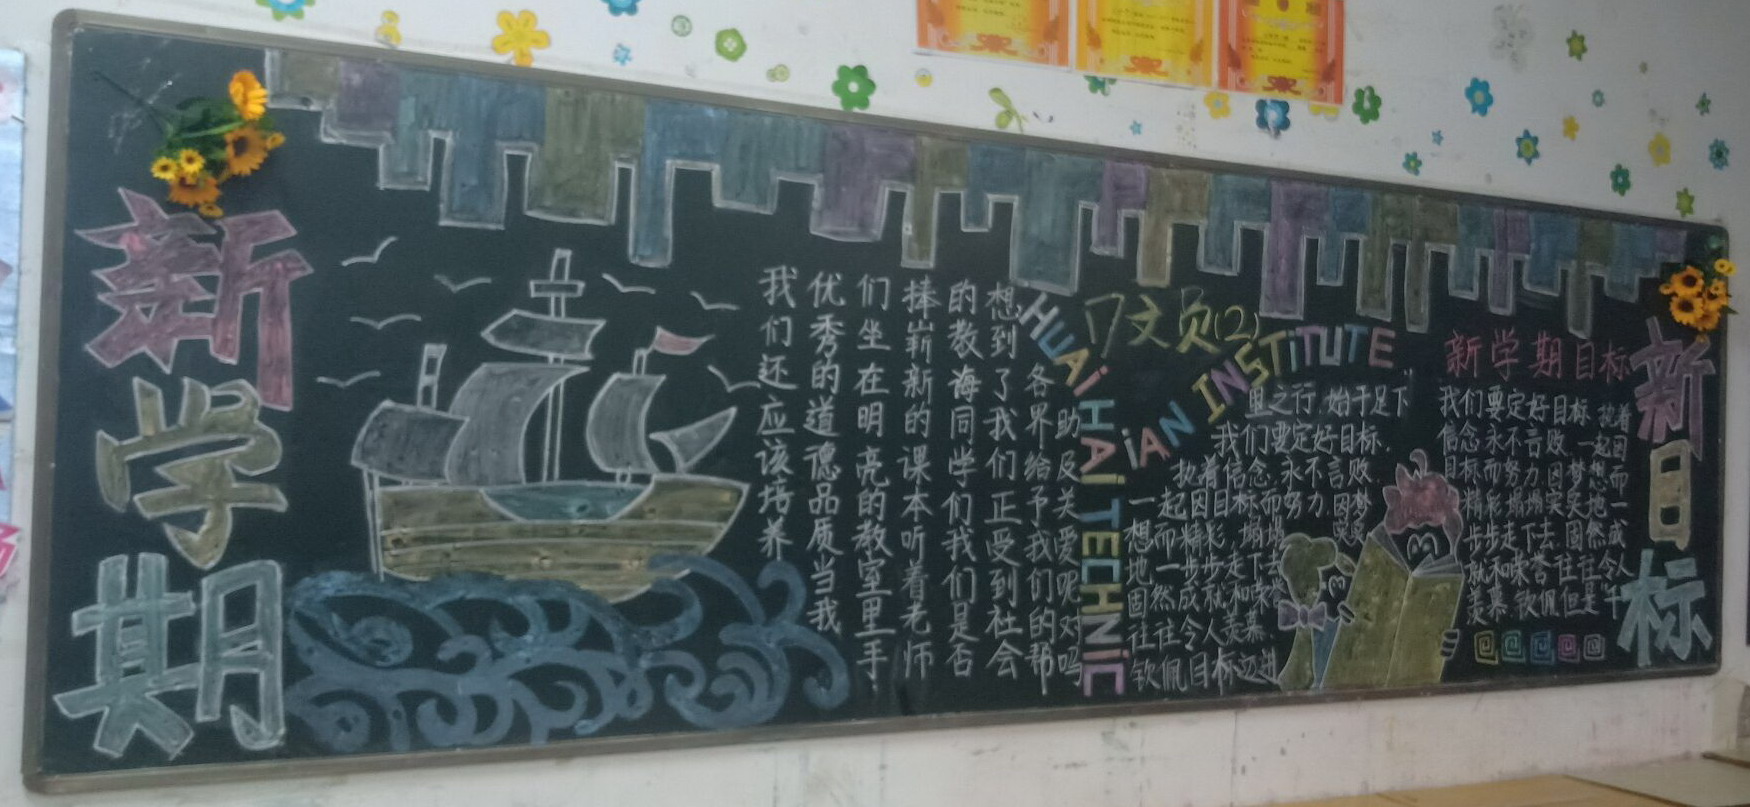 新学期
我们还应该培养
优秀的道德品质当我
们坐在明亮的教室里手
捧崭新的课本听着老师
的教诲同学们我们是否
想到了我们正受到社会
各界给予我们的帮
助及关爱呢对吗
HUAiHAi TECHNiC
iAN INSTiTUTE
文员(2)
里之行,始于足下
我们要定好目标,
执着信念,永不言败
一起因目标而努力,因梦
想而精彩,塌塌实实
地一步步走下去
固然成就和荣誉
往往令人羡慕,
钦佩目标迈进
新学期目标
我们要定好目标,执着
信念永不言败,一起因
目标而努力,因梦想而
精彩,塌塌实实地一
步步走下去,固然成
就和荣誉往往令人
羡慕,钦佩但是午
新目标